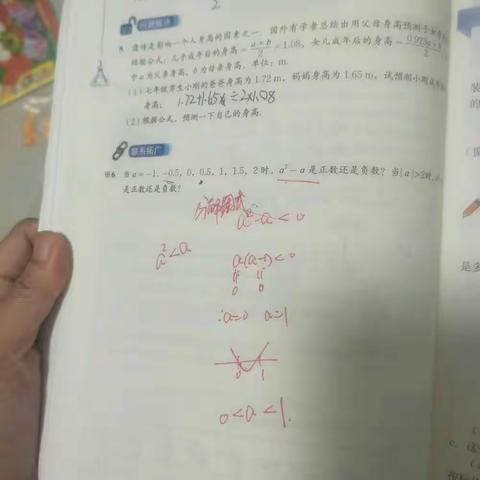 2
问题解决
5. 遗传是影响一个人身高的因素之一. 国外有学者总结出用父母身高预测子女身高的
经验公式: 儿子成年后的身高=(a+b)/2×1.08, 女儿成年后的身高=(0.923a+b)/2
中a为父亲身高, b为母亲身高, 单位: m.
(1) 七年级男生小刚的爸爸身高为1.72 m, 妈妈身高为1.65 m, 试预测小刚成年后的
身高; 1.72+1.65 ÷2×1.08
(2) 根据公式, 预测一下自己的身高.
联系拓广
※6. 当a=-1, -0.5, 0, 0.5, 1, 1.5, 2时, a²-a是正数还是负数? 当|a|>2时,
是正数还是负数?
a²-a<0
a²<a
a(a-1)<0
0 0
∴a=0 a=1
0 1
0<a<1.
装
的
是多